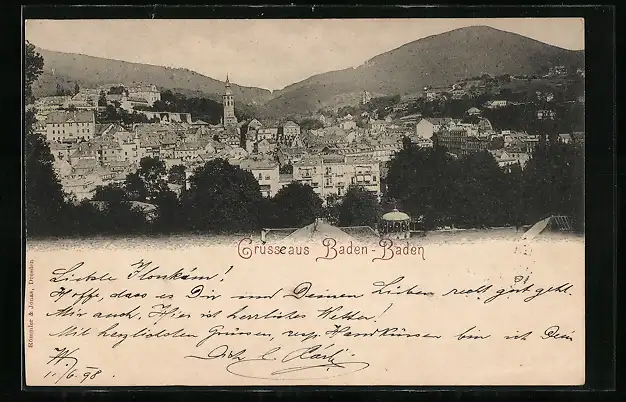 Grüsse aus Baden-Baden
Liebste
Hoffe, dass es Dir und Deinen Lieben recht gut geht.
Mir auch, Hier ist herrliches Wetter!
Mit herzlichsten Grüssen, resp. Handküssen bin ich Dein
11./6. 98.
Römmler & Jonas, Dresden